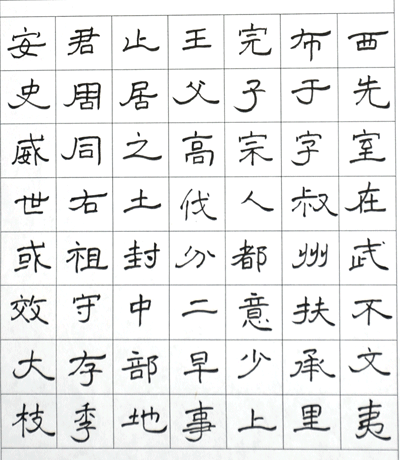 西先室在武不文夷
布于字叔州扶承里
完子宗人都意少上
王父高伐分二早事
止居之土封中部地
君周同右祖守存季
安史威世或效大枝